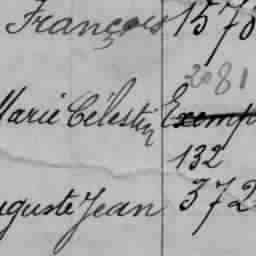 François 1578
2081
Marie Célestin Exemp
132
Auguste Jean 372